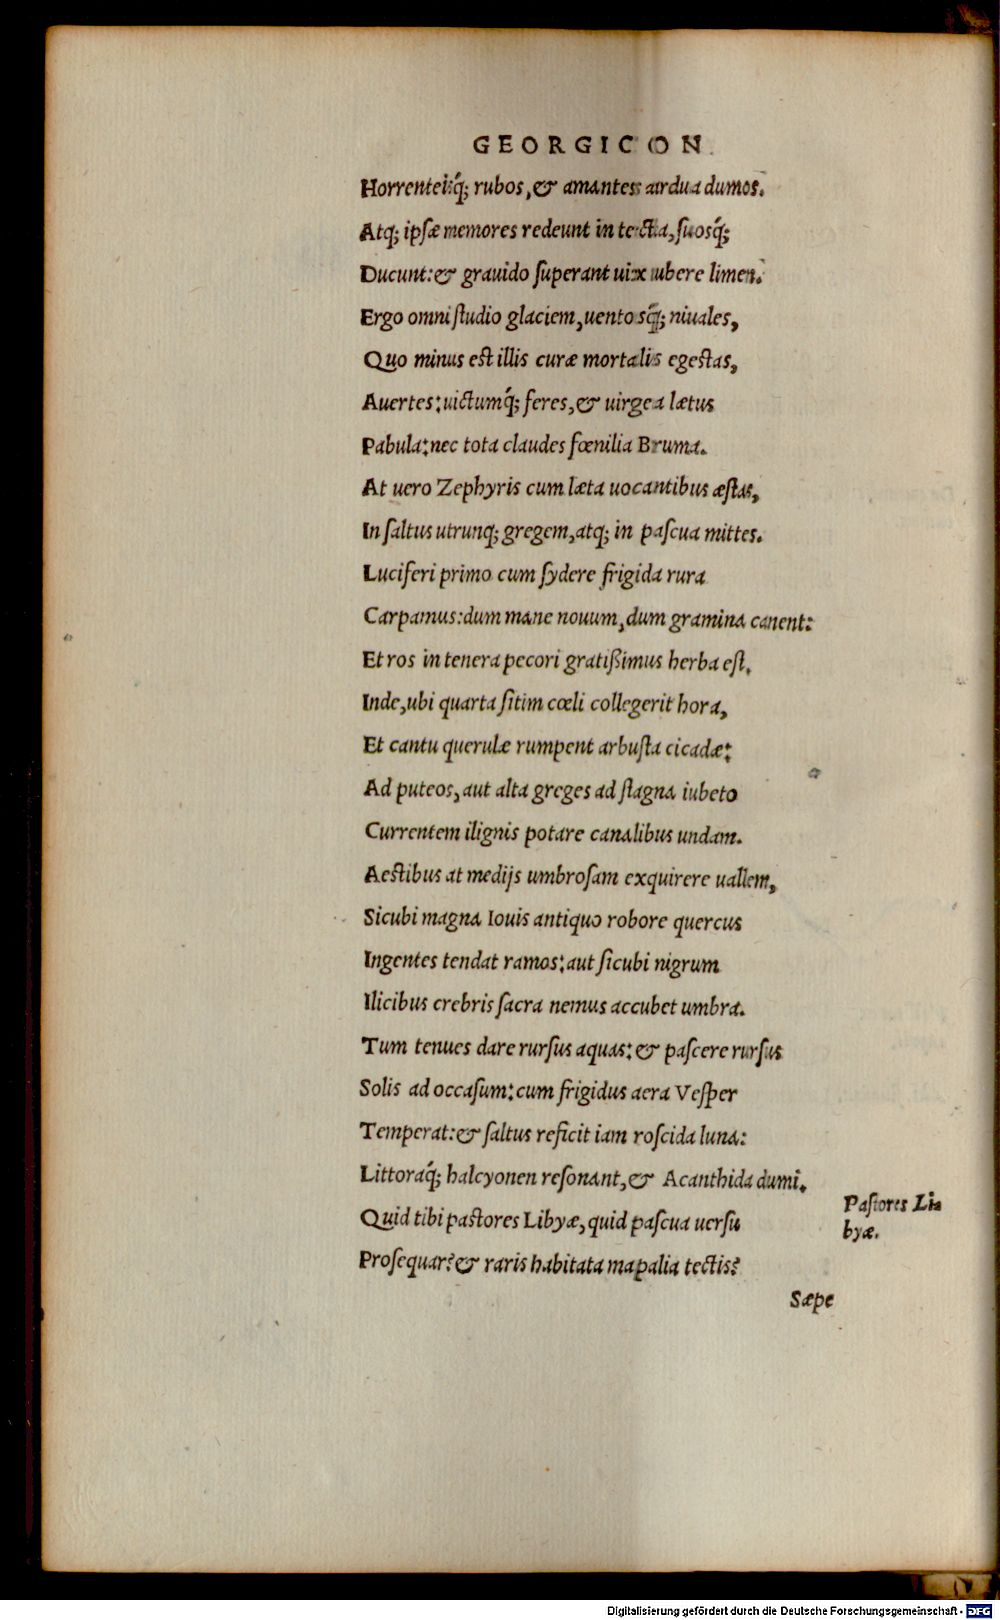 GEORGICON
Horrenteisq́; rubos, & amantes ardua dumos.
Atq; ipsæ memores redeunt in tecta, suosq́;
Ducunt: & grauido superant uix ubere limen.
Ergo omni studio glaciem, uentosq́; niuales,
Quo minus est illis curæ mortalis egestas,
Auertes: uictumq́; feres, & uirgea lætus
Pabula: nec tota claudes fœnilia Bruma.
At uero Zephyris cum læta uocantibus æstas,
In saltus utrunq; gregem, atq; in pascua mittes.
Luciferi primo cum sydere frigida rura
Carpamus: dum mane nouum, dum gramina canent:
Et ros in tenera pecori gratißimus herba est.
Inde, ubi quarta sitim cœli collegerit hora,
Et cantu querulæ rumpent arbusta cicadæ:
Ad puteos, aut alta greges ad stagna iubeto
Currentem ilignis potare canalibus undam.
Aestibus at medijs umbrosam exquirere uallem,
Sicubi magna Iouis antiquo robore quercus
Ingentes tendat ramos: aut sicubi nigrum
Ilicibus crebris sacra nemus accubet umbra.
Tum tenues dare rursus aquas: & pascere rursus
Solis ad occasum: cum frigidus aera Vesper
Temperat: & saltus reficit iam roscida luna:
Littoraq́; halcyonen resonant, & Acanthida dumi.
Quid tibi pastores Libyæ, quid pascua uersu
Prosequar? & raris habitata mapalia tectis?
Pastores Li⸗
byæ.
Sæpe
Digitalisierung gefördert durch die Deutsche Forschungsgemeinschaft - DFG